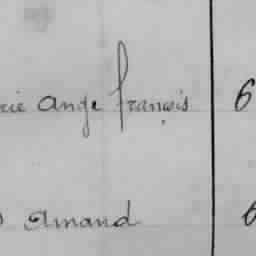 rie Ange françois 6
s Amand 6